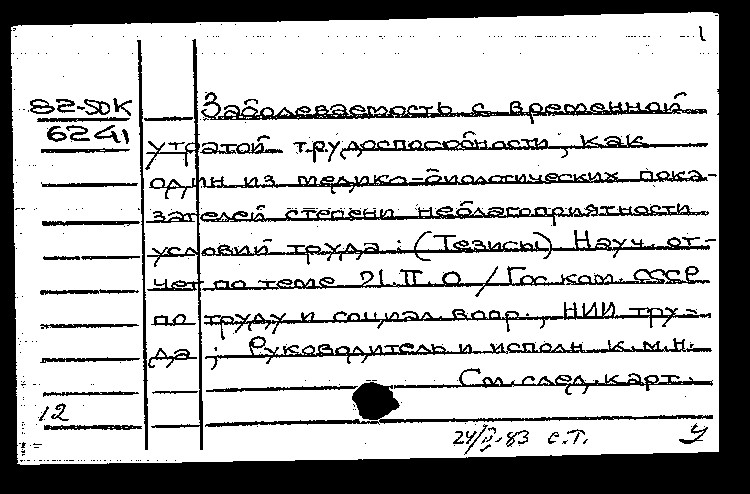 1
82-50К
6241
Заболеваемость с временной
утратой трудоспособности, как
один из медико-биологических пока-
зателей степени неблагоприятности
условий труда: (Тезисы) Науч. от-
чет по теме 21.П.О / Гос. ком. СССР
по труду и социал. вопр., НИИ тру-
да; Руководитель и исполн. к.м.н.
См. след. карт.
12
24/ -83 с.т.